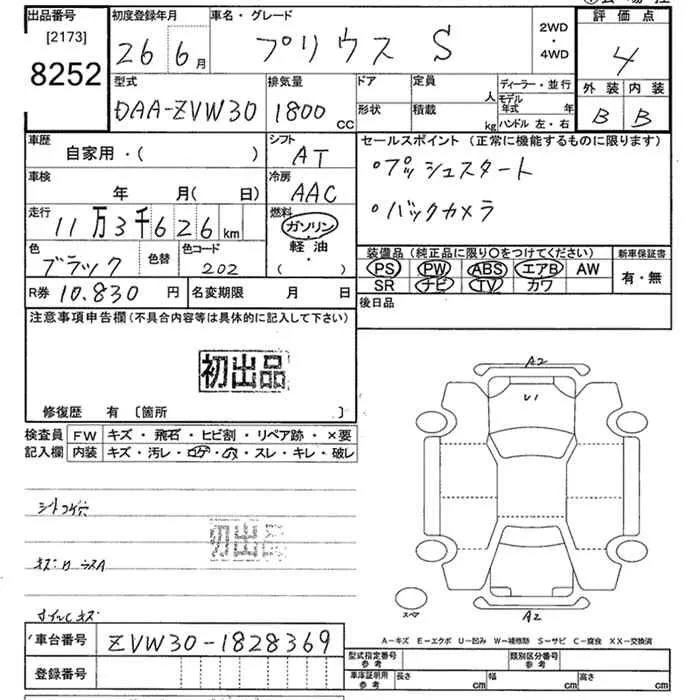 出品番号
[2173]
8252
初度登録年月
26 6月
車名・グレード
プリウス S
2WD
・
4WD
評 価 点
4
外 装 内 装
B B
型式
DAA-ZVW30
排気量
1800 CC
ドア
形状
定員
人
積載
kg
ディーラー・並行
モデル年式 年
ハンドル 左・右
車歴
自家用・( )
シフト
AT
セールスポイント (正常に機能するものに限ります)
・プッシュスタート
・バックカメラ
車検
年 月( 日)
冷房
AAC
走行
11万3千626 km
燃料
ガソリン・
軽 油・
( )
色
ブラック
色替
色コード
202
装備品 (純正品に限り○をつけてください)
PS PW ABS エアB AW
SR ナビ TV カワ
新車保証書
有・無
R券 10,830 円
名変期限 月 日
後日品
注意事項申告欄 (不具合内容等は具体的に記入して下さい)
初出品
修復歴 有 〔箇所 〕
検査員
記入欄
FW キズ・飛石・ヒビ割・リペア跡・×要
内装 キズ・汚レ・コゲ・穴・スレ・キレ・破レ
シートコゲ穴
初出品
A2
U1
A2
スペア
A-キズ E-エクボ U-凹み W-補修跡 S-サビ C-腐食 XX-交換済
車台番号 ZVW30-1828369
登録番号
型式指定番号
参 考
類別区分番号
参 考
車庫証明用
参 考
長さ cm
幅 cm
高さ cm